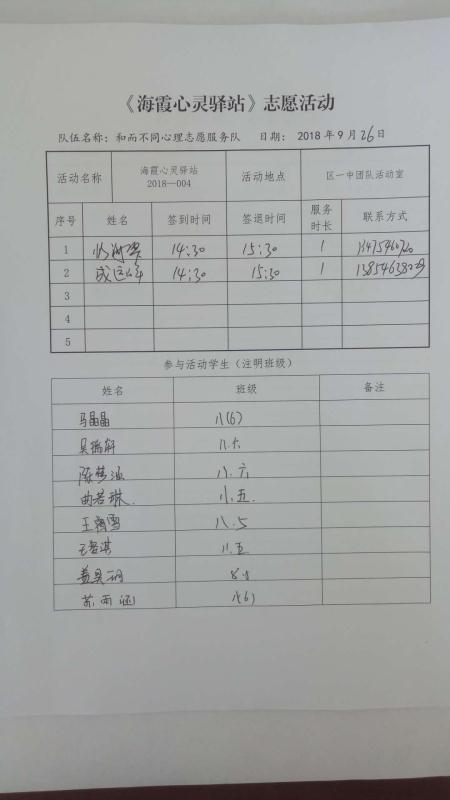 《海霞心灵驿站》志愿活动
队伍名称：和而不同心理志愿服务队 日期：2018年9月26日
活动名称 海霞心灵驿站 2018—004 活动地点 区一中团队活动室
序号 姓名 签到时间 签退时间 服务时长 联系方式
1 14:30 15:30 1
2 14:30 15:30 1
3
4
5
参与活动学生（注明班级）
姓名 班级 备注
马晶晶 八(6)
吴瑞轩 八.六
陈梦涵 八.六
曲若琳 八.五.
王雨雪 八.5
王若淇 八.五
8.5
苏雨涵 八(6)